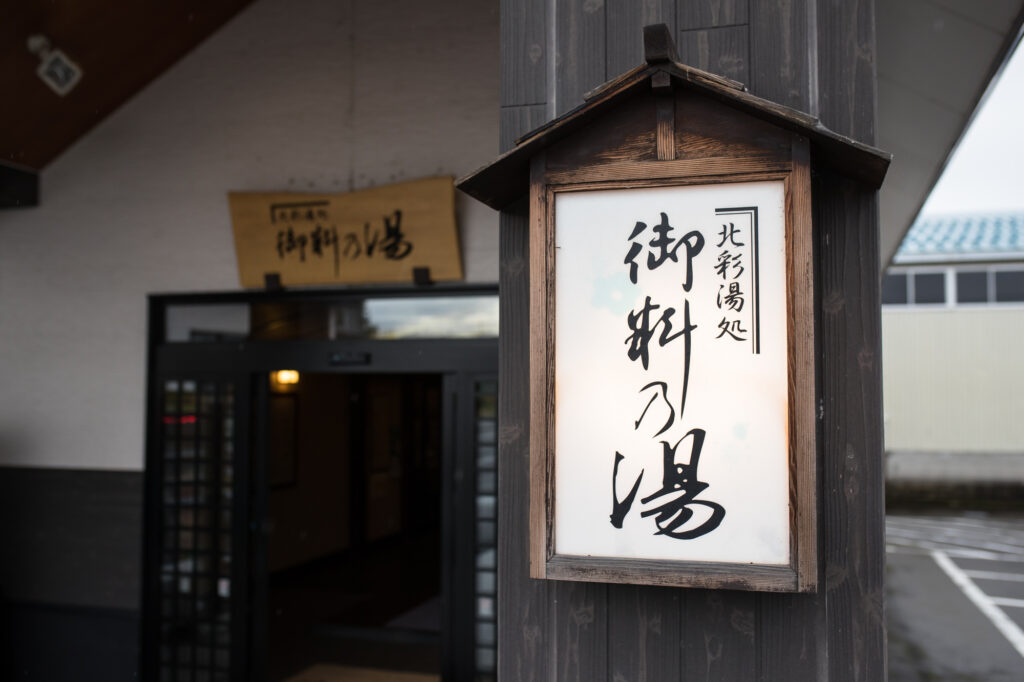 北彩湯処
御料乃湯
北彩湯処
御料乃湯